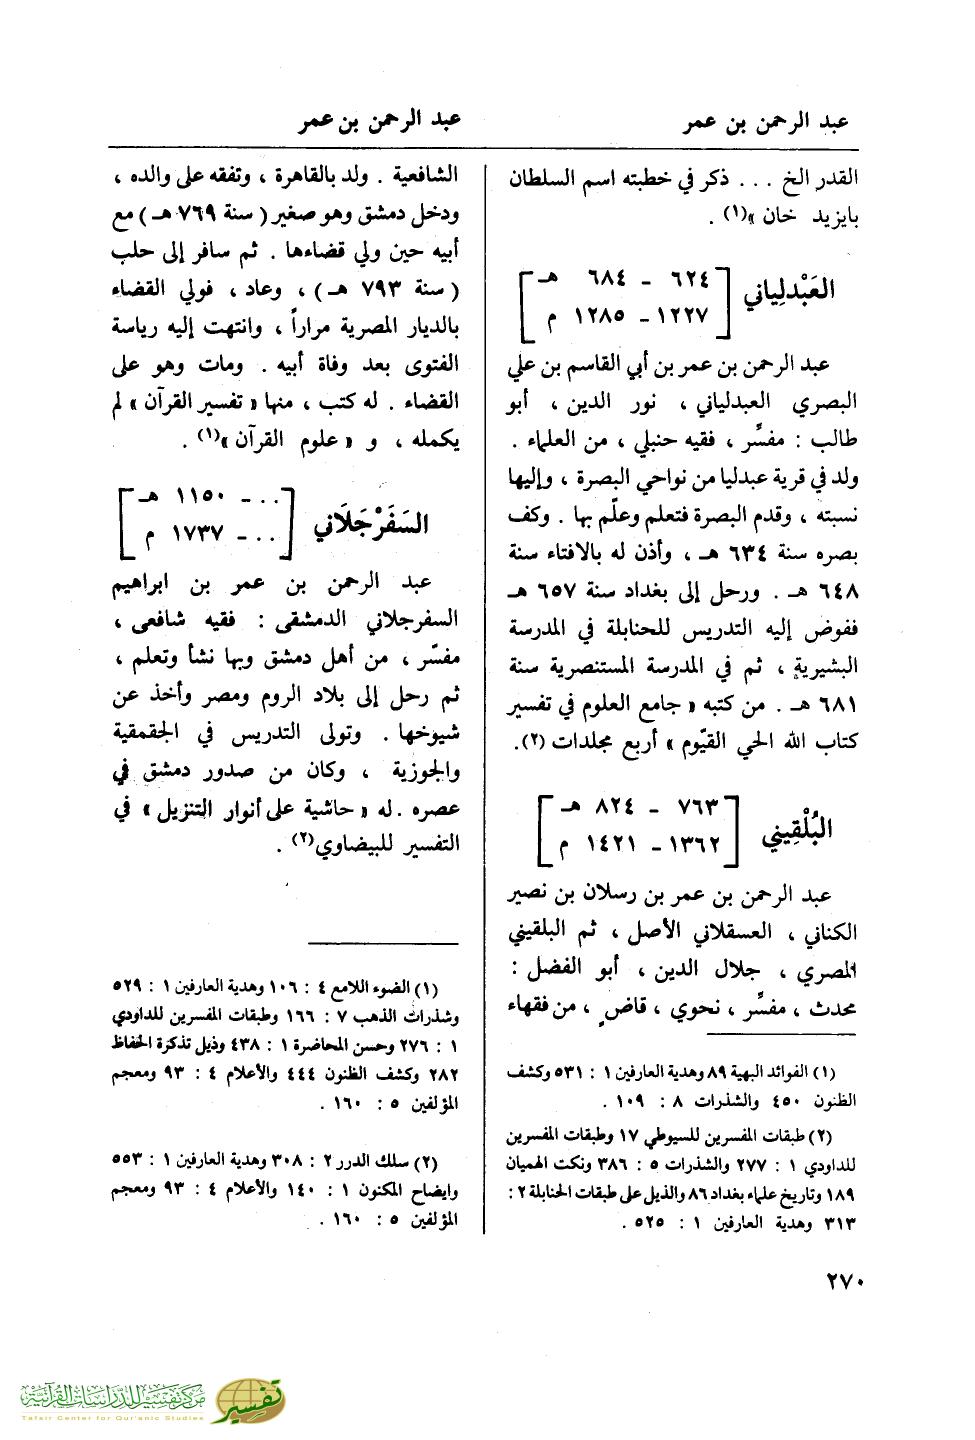 عبد الرحمن بن عمر
عبد الرحمن بن عمر
القدر الخ . . . ذكر في خطبته اسم السلطان
بايزيد خان »(١) .
العَبْدلِياني
٦٢٤ ـ ٦٨٤ هـ
١٢٢٧ ـ ١٢٨٥ م
عبد الرحمن بن عمر بن أبي القاسم بن علي
البصري العبدلياني ، نور الدين ، أبو
طالب : مفسِّر ، فقيه حنبلي ، من العلماء .
ولد في قرية عبدليا من نواحي البصرة ، وإليها
نسبته ، وقدم البصرة فتعلم وعلّم بها . وكف
بصره سنة ٦٣٤ هـ ، وأذن له بالافتاء سنة
٦٤٨ هـ . ورحل إلى بغداد سنة ٦٥٧ هـ
ففوض إليه التدريس للحنابلة في المدرسة
البشيرية ، ثم في المدرسة المستنصرية سنة
٦٨١ هـ . من كتبه « جامع العلوم في تفسير
كتاب الله الحي القيّوم » أربع مجلدات (٢).
البُلْقِيني
٧٦٣ ـ ٨٢٤ هـ
١٣٦٢ ـ ١٤٢١ م
عبد الرحمن بن عمر بن رسلان بن نصير
الكناني ، العسقلاني الأصل ، ثم البلقيني
المصري ، جلال الدين ، أبو الفضل :
محدث ، مفسِّر ، نحوي ، قاض ٍ، من فقهاء
(١) الفوائد البهية ٨٩ وهدية العارفين ١ : ٥٣١ وكشف
الظنون ٤٥٠ والشذرات ٨ : ١٠٩ .
(٢) طبقات المفسرين للسيوطي ١٧ وطبقات المفسرين
للداودي ١ : ٢٧٧ والشذرات ٥ : ٣٨٦ ونكت الهميان
١٨٩ وتاريخ علماء بغداد ٨٦ والذيل على طبقات الحنابلة ٢ :
٣١٣ وهدية العارفين ١ : ٥٢٥ .
الشافعية . ولد بالقاهرة ، وتفقه على والده ،
ودخل دمشق وهو صغير ( سنة ٧٦٩ هـ ) مع
أبيه حين ولي قضاءها . ثم سافر إلى حلب
( سنة ٧٩٣ هـ ) ، وعاد ، فولي القضاء
بالديار المصرية مراراً ، وانتهت إليه رياسة
الفتوى بعد وفاة أبيه . ومات وهو على
القضاء . له كتب ، منها « تفسير القرآن » لم
يكمله ، و « علوم القرآن »(١) .
السَفَرْجلَاني
. . . ـ ١١٥٠ هـ
. . . ـ ١٧٣٧ م
عبد الرحمن بن عمر بن ابراهيم
السفرجلاني الدمشقى : فقيه شافعى ،
مفسّر ، من أهل دمشق وبها نشأ وتعلم ،
ثم رحل إلى بلاد الروم ومصر وأخذ عن
شيوخها . وتولى التدريس في الجقمقية
والجوزية ، وكان من صدور دمشق في
عصره . له « حاشية على أنوار التنزيل » في
التفسير للبيضاوي(٢) .
(١) الضوء اللامع ٤ : ١٠٦ وهدية العارفين ١ : ٥٢٩
وشذرات الذهب ٧ : ١٦٦ وطبقات المفسرين للداودي
١ : ٢٧٦ وحسن المحاضرة ١ : ٤٣٨ وذيل تذكرة الحفاظ
٢٨٢ وكشف الظنون ٤٤٤ والأعلام ٤ : ٩٣ ومعجم
المؤلفين ٥ : ١٦٠ .
(٢) سلك الدرر ٢ : ٣٠٨ وهدية العارفين ١ : ٥٥٣
وايضاح المكنون ١ : ١٤٠ والأعلام ٤ : ٩٣ ومعجم
المؤلفين ٥ : ١٦٠ .
٢٧٠
مركز تفسير للدراسات القرآنية
Tafsir Center for Qur'anic Studies
تفسير